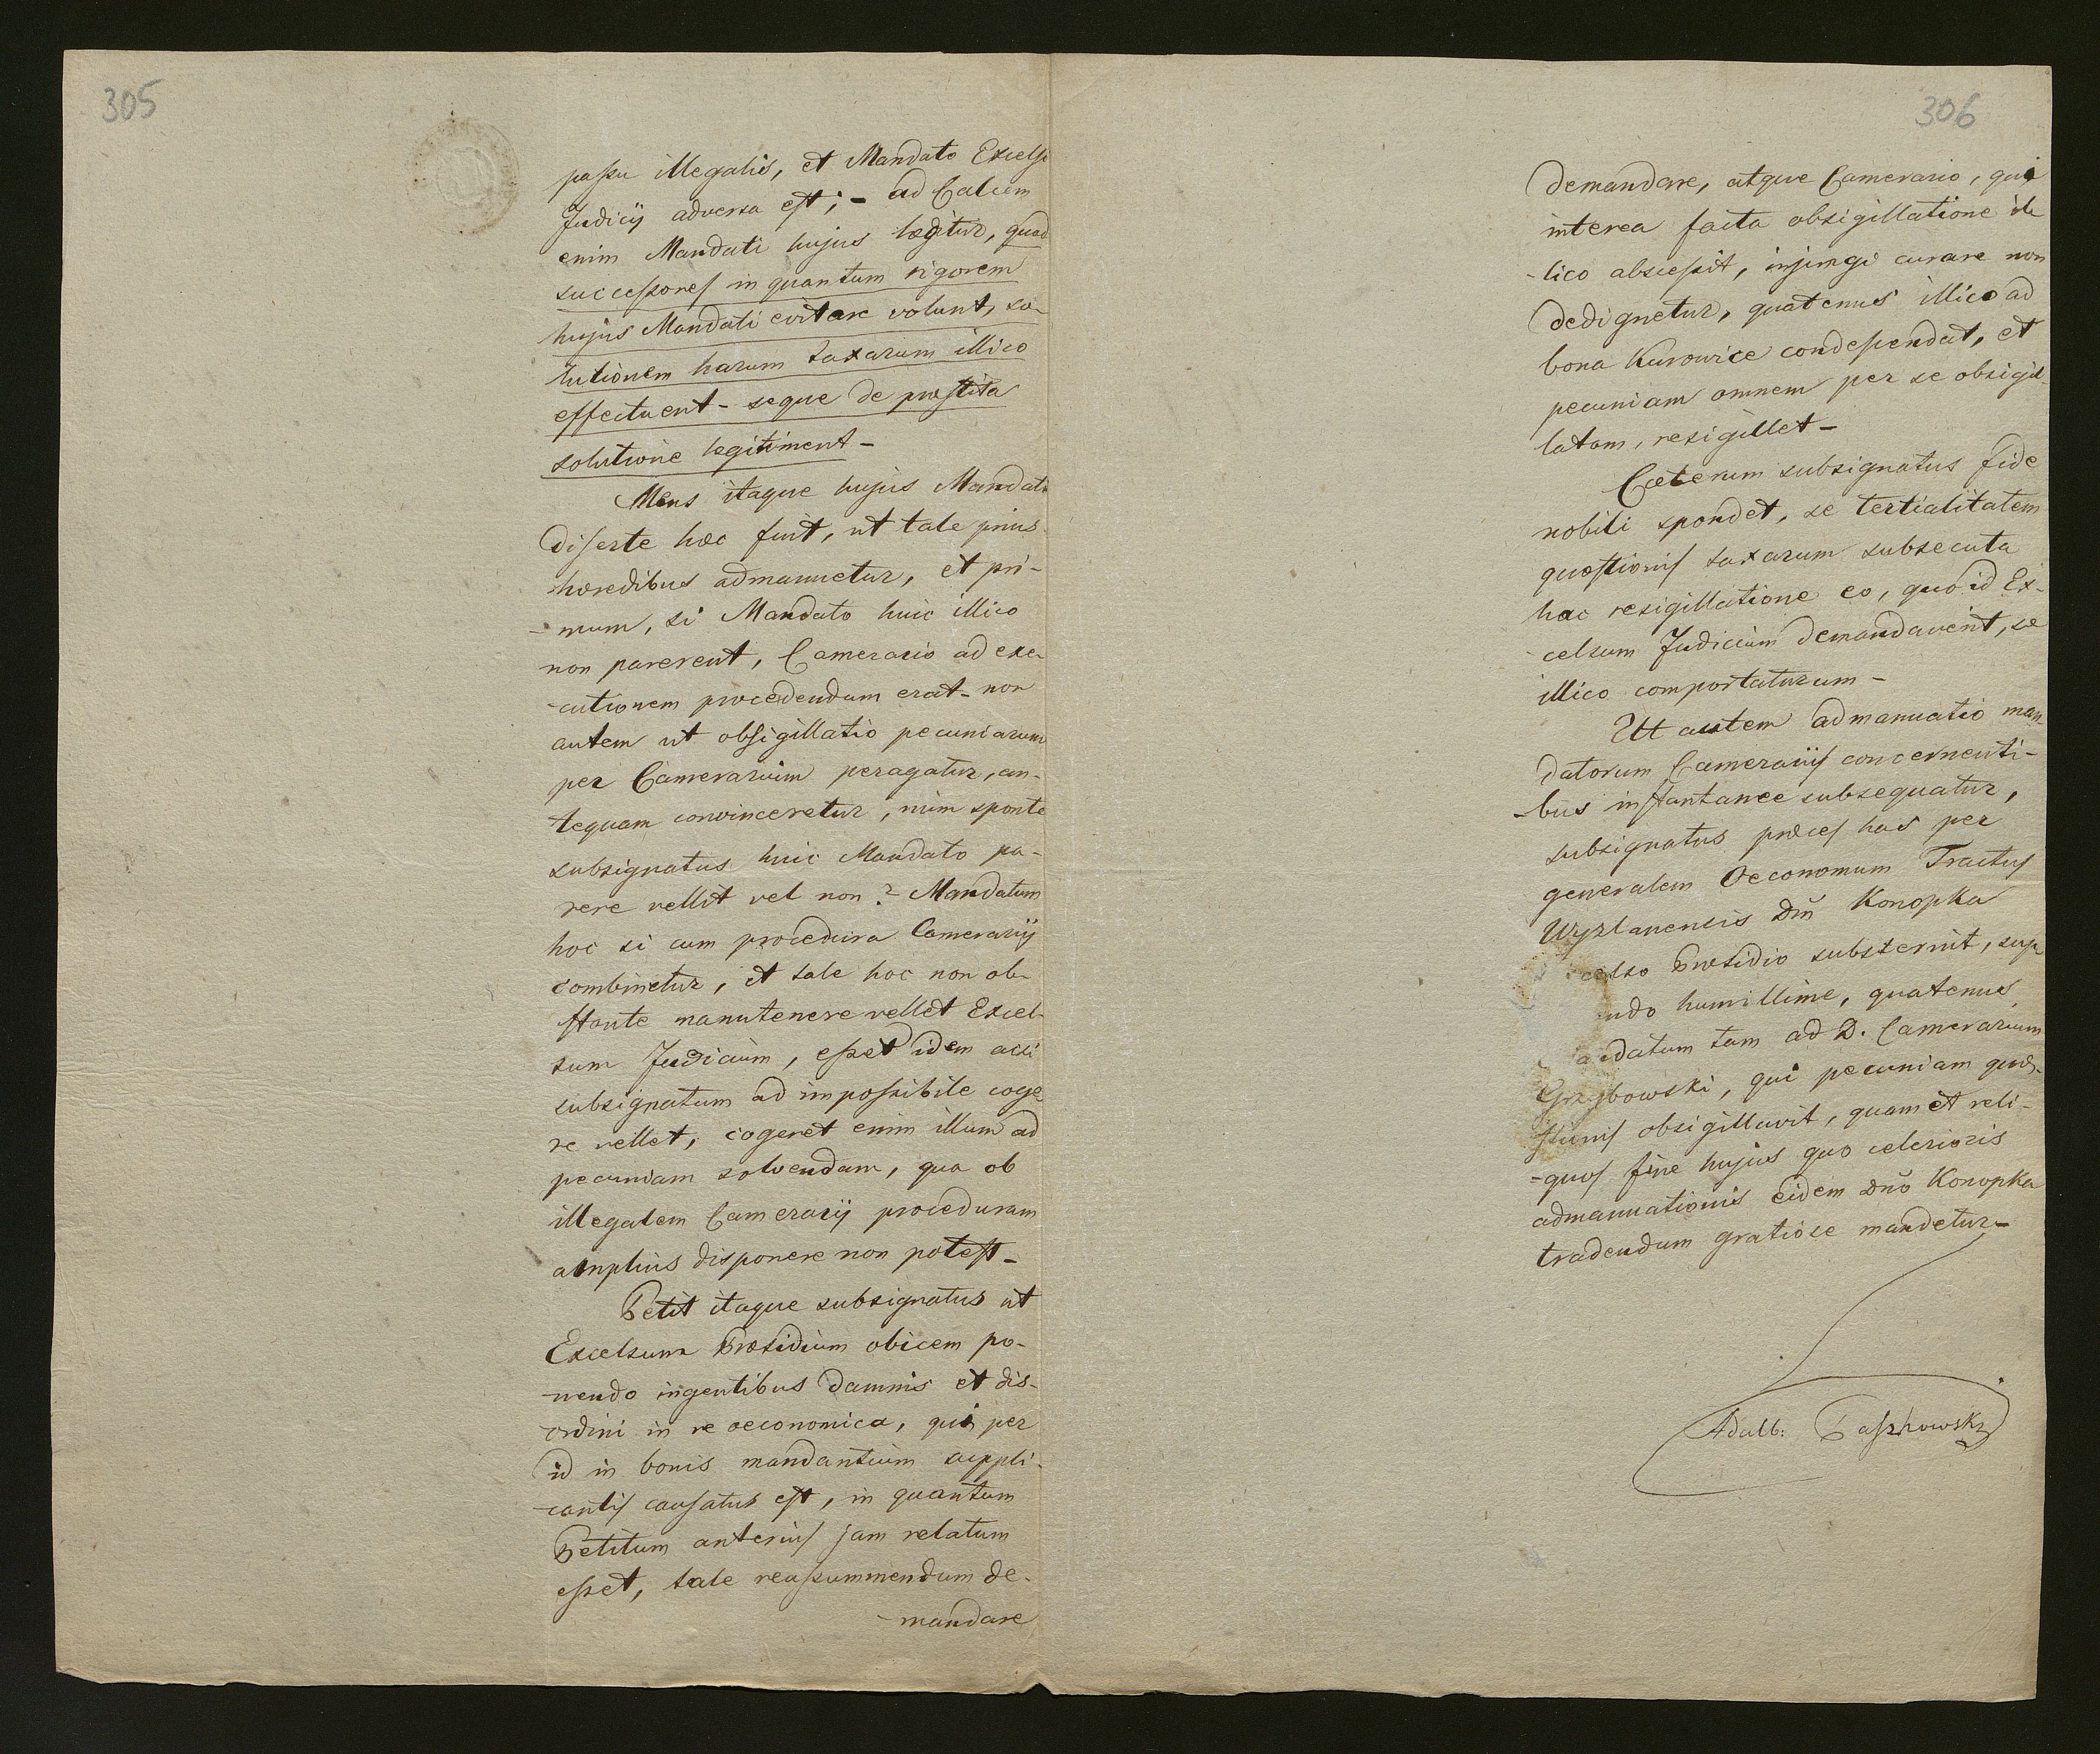 305
passu illegalis, et Mandato Excelsi
Judicij adversa est; - ad Calcem
enim Mandati hujus legitur, quod
successores in quantum rigorem
hujus Mandati evitare volunt, so-
lutionem harum taxarum illico
effectuent - seque de præstita
solutione legitiment -
Mens itaque hujus Mandati
diserte hæc fuit, ut tale prius
hæredibus admanuetur, et pri-
-mum, si Mandato huic illico
non parerent, Camerario ad exe-
-cutionem procedendum erat - non
autem ut obsigillatio pecuniarum
per Camerarium peragatur, an-
tequam convinceretur, num sponte
subsignatus huic Mandato pa-
rere vellit vel non? Mandatum
hoc si cum procedura Camerarij
combinetur, et tale hoc non ob-
stante manutenere vellet Excel-
sum Judicium, esset idem acsi
subsignatum ad impossibile coge-
re vellet, cogeret enim illum ad
pecuniam solvendam, qua ob
illegalem Camerarij proceduram
amplius disponere non potest -
Petit itaque subsignatus ut
Excelsum Præsidium obicem po-
-nendo ingentibus damnis et dis-
-ordini in re oeconomica, qui per
id in bonis mandantium suppli-
-cantis causatus est, in quantum
Petitum anterius jam relatum
esset, tale reassummendum de-
-mandare
306
demandare, atque Camerario, qui
interea facta obsigillatione il-
-lico abscessit, injungi curare non
dedignetur, quatenus illico ad
bona Kurowice condescendat, et
pecuniam omnem per se obsigil-
latam, resigillet -
Cæterum subsignatus fide
nobili spondet, se tertialitatem
quæstionis taxarum subsecuta
hac resigillatione eo, quo id Ex-
-celsum Judicium demandaverit, se
illico comportaturum -
Ut autem admanuatio man-
datorum Camerarijs concernenti-
-bus instantanee subsequatur,
subsignatus preces has per
generalem Oeconomum Tractus
Wyzlanensis Dnī Konopka
celso Præsidio substernit, sup
ndo humillime, quatenus
andatum tam ad D. Camerarium
Grzybowski, qui pecuniam quæ-
stionis obsigillavit, quam et reli-
-quos fine hujus quo celerioris
admanuationis eidem Dnō Konopka
tradendum gratiose mandetur -
Adalb: